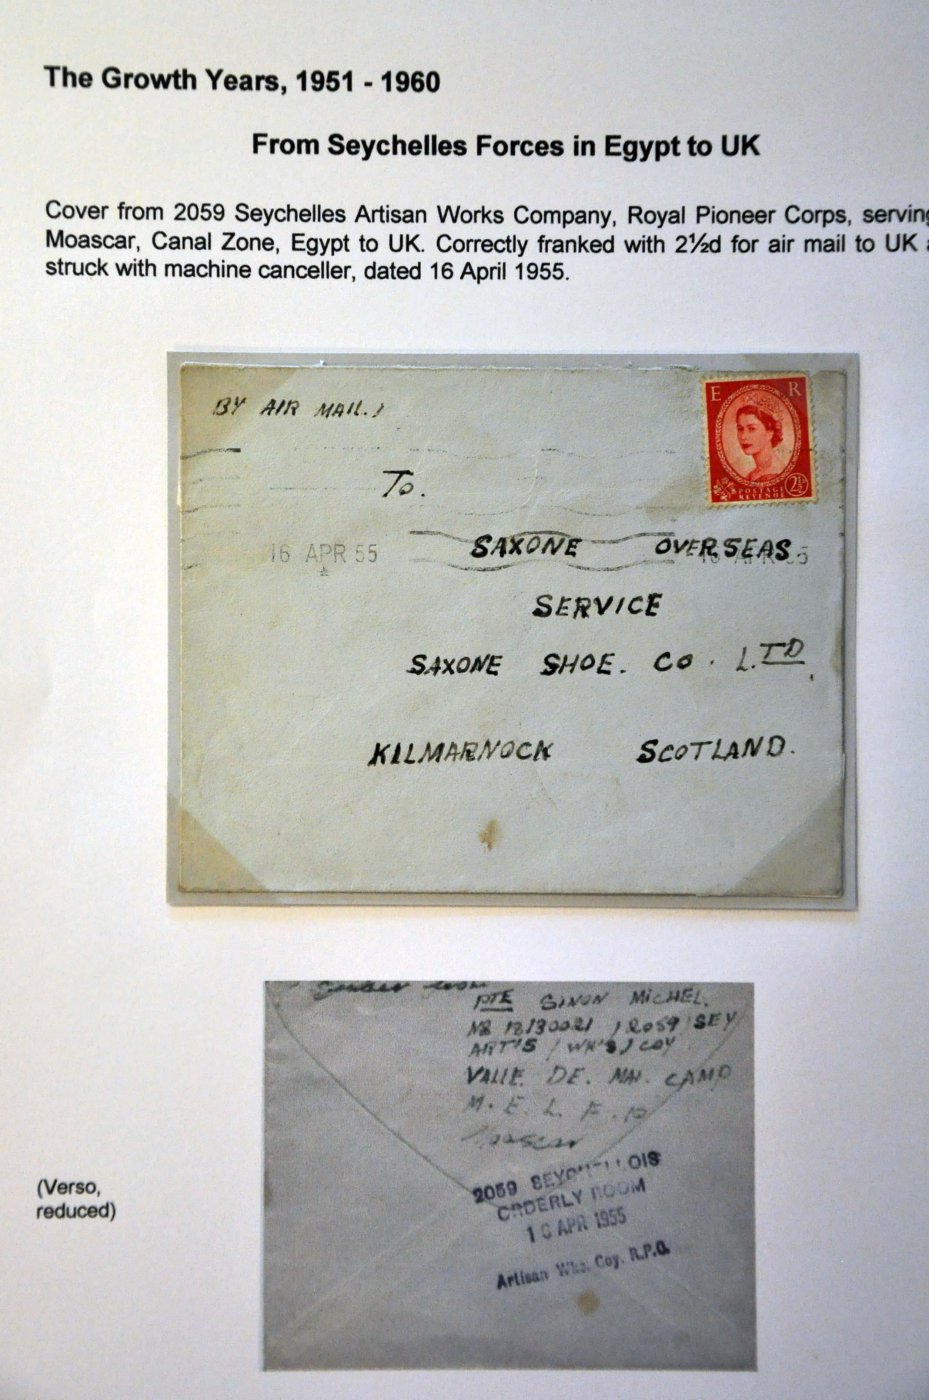 The Growth Years, 1951 - 1960
From Seychelles Forces in Egypt to UK
Cover from 2059 Seychelles Artisan Works Company, Royal Pioneer Corps, serving
Moascar, Canal Zone, Egypt to UK. Correctly franked with 2½d for air mail to UK
struck with machine canceller, dated 16 April 1955.
BY AIR MAIL.
E R
POSTAGE 2½
REVENUE
To.
16 APR 55
SAXONE OVERSEAS
16 APR 55
SERVICE
SAXONE SHOE. CO. LTD
KILMARNOCK SCOTLAND.
Sender from
PTE SIMON MICHEL.
18130021 / 2059 / SEY
ART'S / WK'S / COY
VALLE. DE. MAI. CAMP
M. E. L. F.
Moascar
2059 SEYCHELLOIS
ORDERLY ROOM
APR 1955
Artisan Wks. Coy. R.P.C.
(Verso,
reduced)